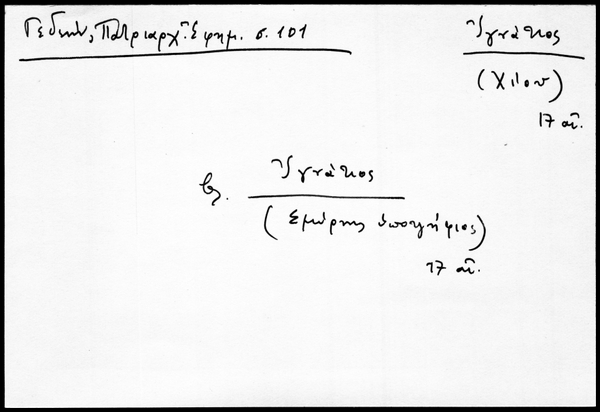 Γεδεών, Πατριαρχ. Ἐφημ. σ. 101
Ἰγνάτιος
(Χίου)
17 αἰ.
βλ. Ἰγνάτιος
(Σμύρνης ὑποψήφιος)
17 αἰ.